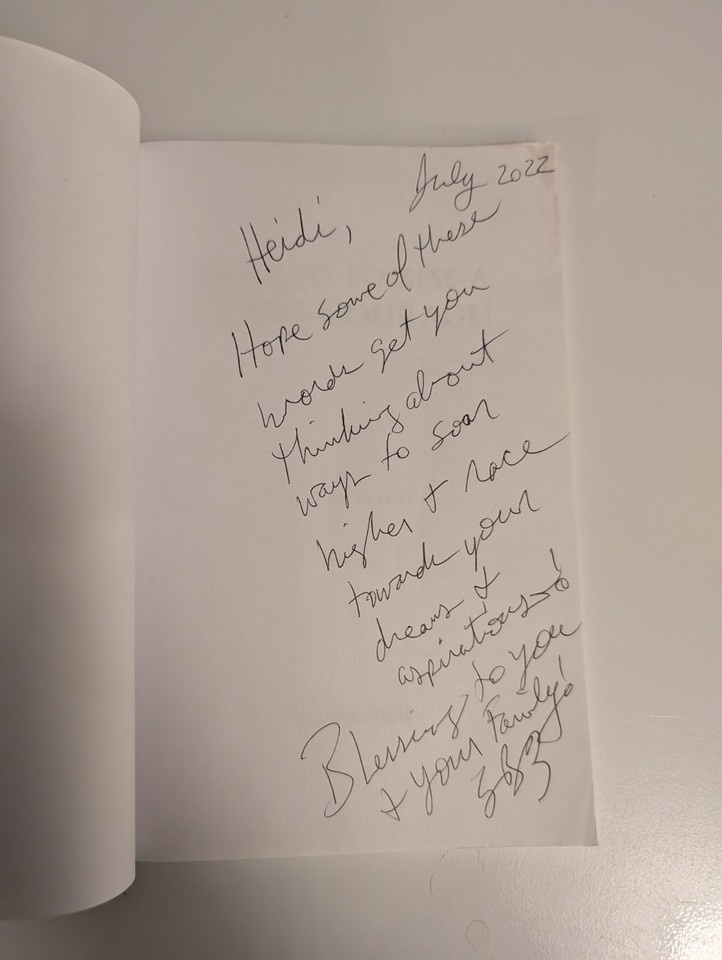 July 2022
Heidi,
Hope some of these
words get you
thinking about
ways to soar
higher + race
towards your
dreams +
aspirations!
Blessings to you
+ your Family!